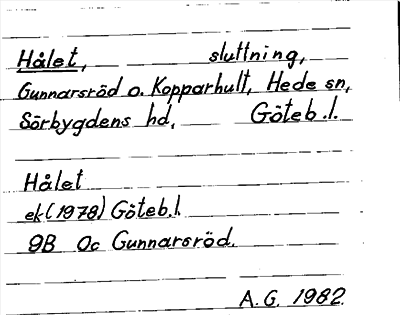 Hålet, sluttning,
Gunnarsröd o. Kopparhult, Hede sn,
Sörbygdens hd, Göteb.l.
Hålet
ek (1978) Göteb.l.
9B 0c Gunnarsröd.
A.G. 1982.